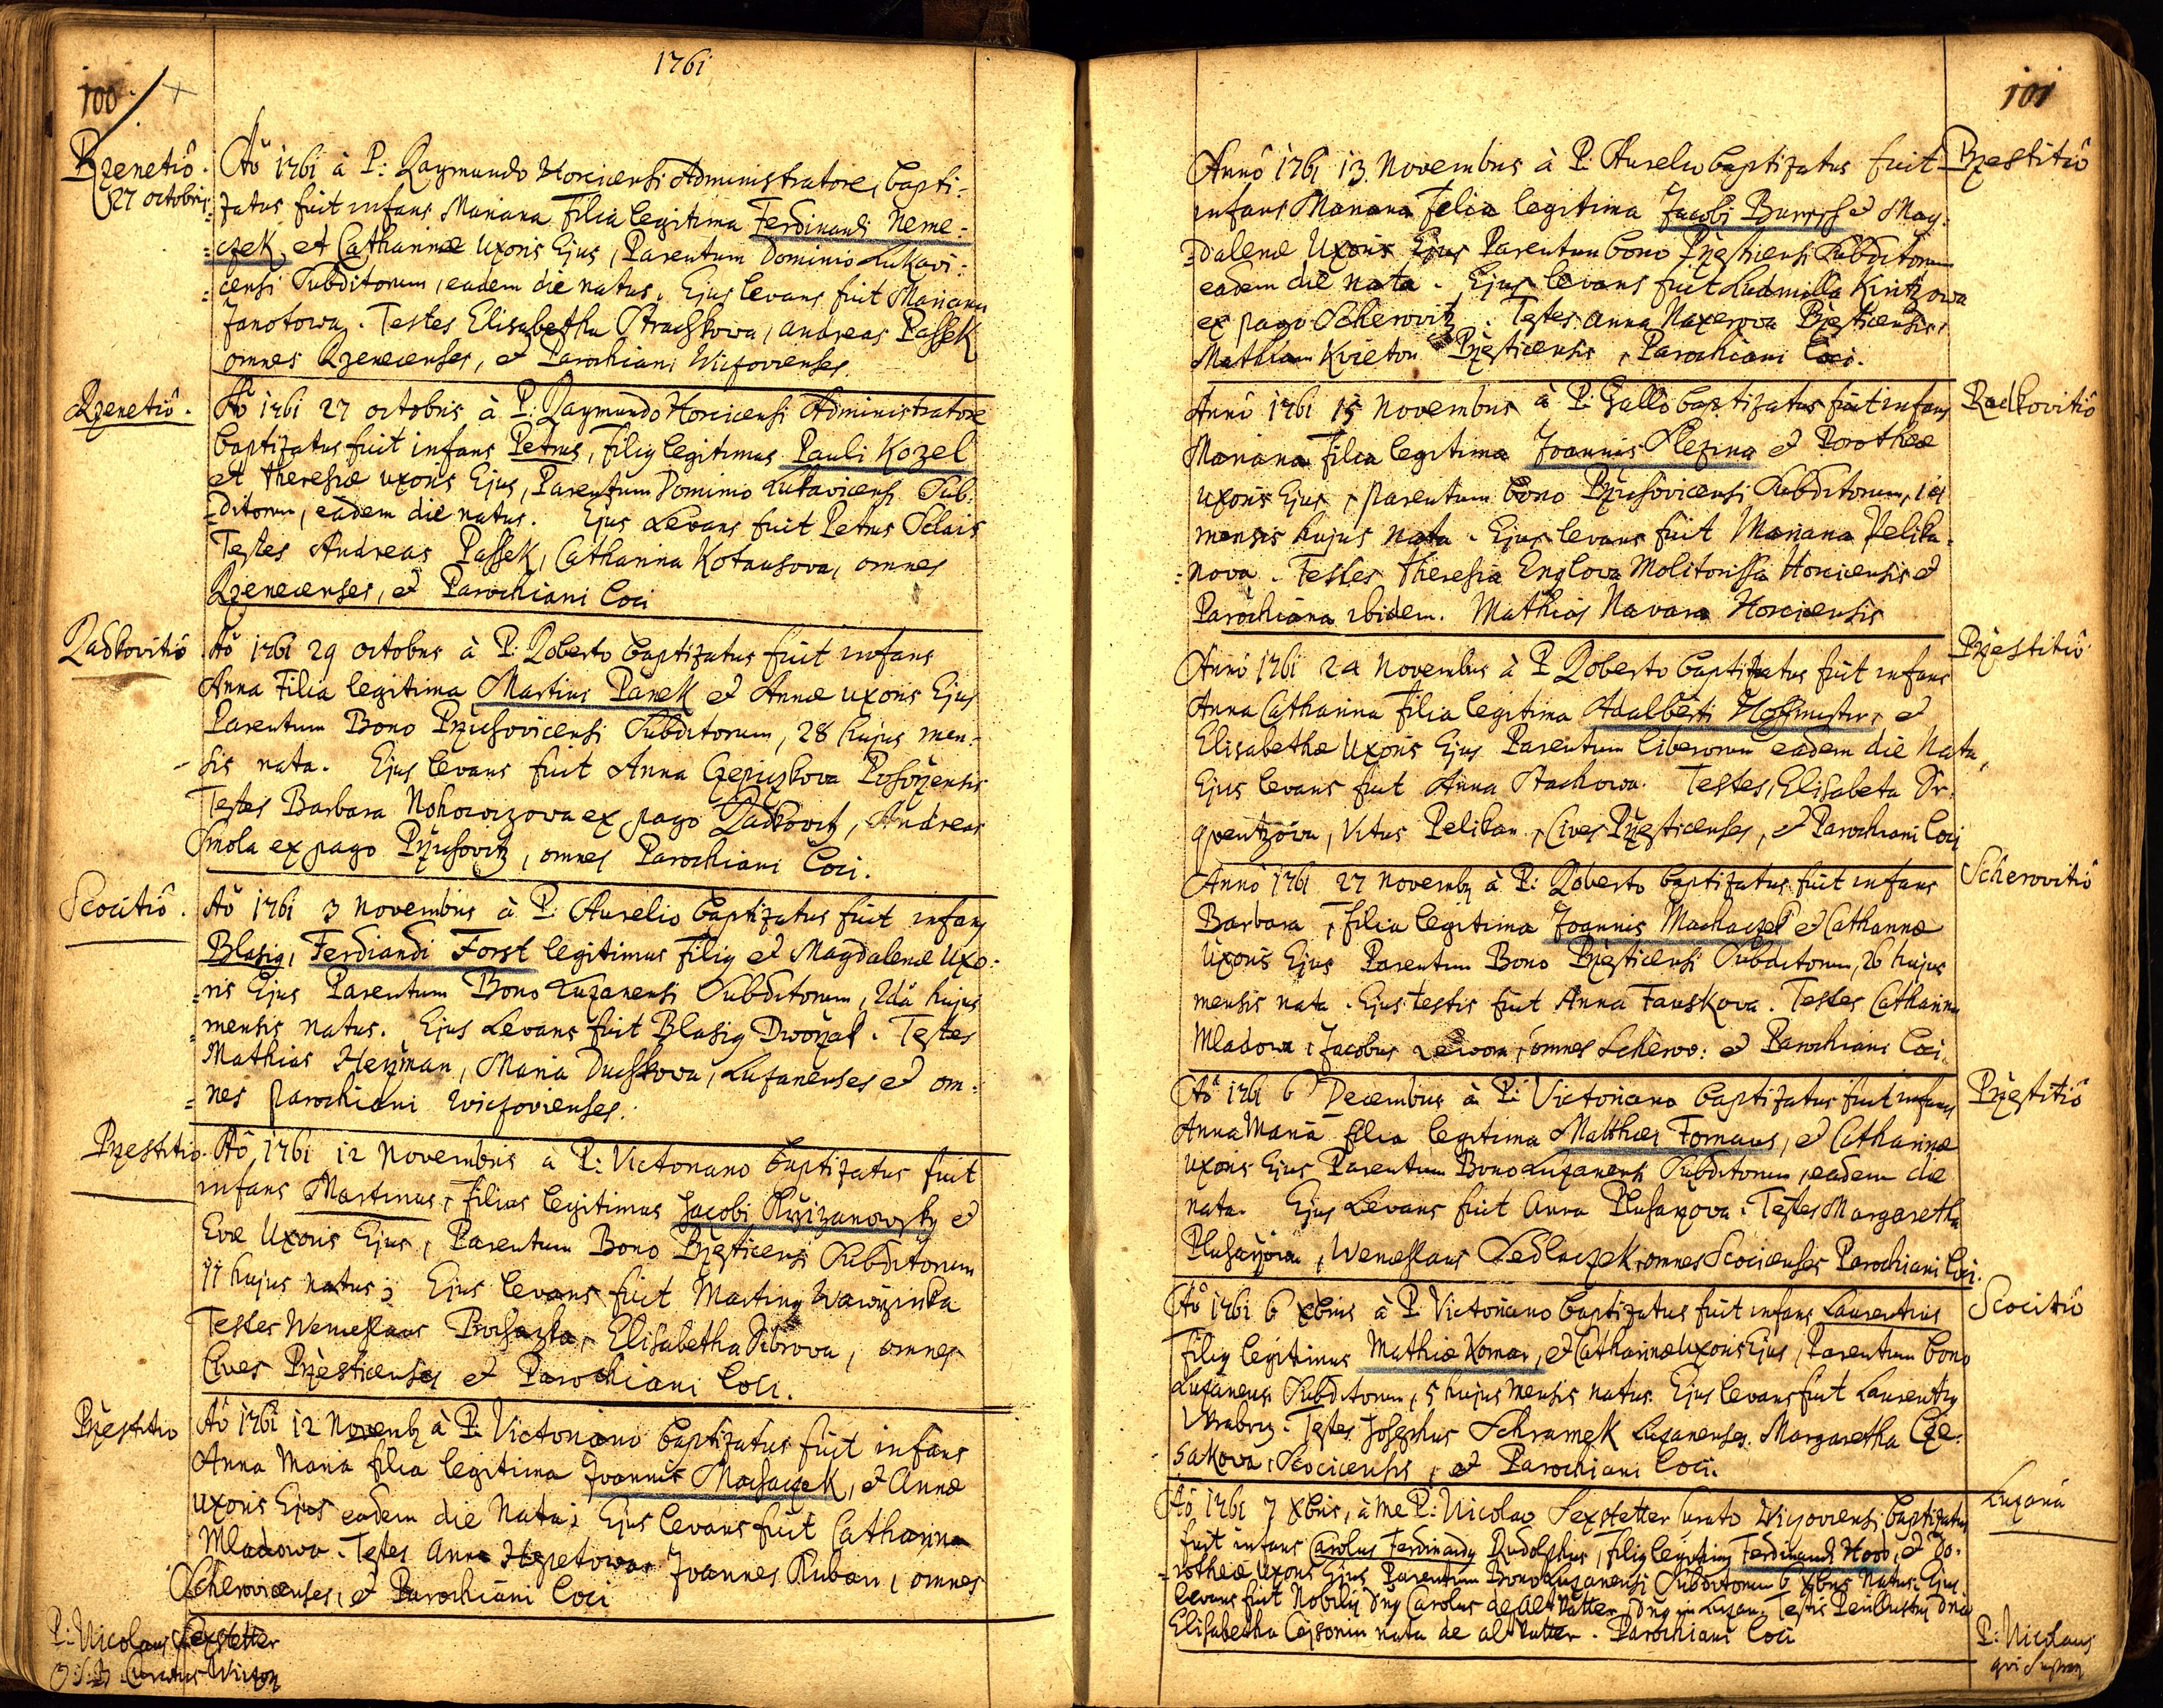 1761
100
Rzenetio.
27 octobris
Aõ 1761 à P: Raymundo Horcicensi Administratore, bapti=
zatus fuit infans Mariana Filia legitima Ferdinandi Neme=
=czek, et Catharinæ Uxoris Ejus, Parentum Dominio Lukavi=
=censi Subditorum, eadem die natus. Ejus levans fuit Mariana
Janotowa. Testes Elisabetha Strachkova, Andreas Passek
omnes Rzenecenses, et Parochiani Wiczovienses
Rzenetiô.
Aõ 1761 27 octobris à P: Raymundo Horcicensi Administratore
baptizatus fuit infans Petrus, Filig legitimus Pauli Kozel
et Theresiæ uxoris Ejus, Parentum Dominio Lukavicensi Sub=
=ditorum, eadem die natus. Ejus Levans fuit Petrus Sclais
Testes Andreas Passek, Catharina Kotausova, omnes
Rzenecenses, et Parochiani Loci
Radkovitiô
Aõ 1761 29 octobris à P: Roberto baptizatus fuit infans
Anna Filia legitima Martius Panek et Annæ uxoris Ejus
Parentum Bono Przichovicensi Subditorum, 28 hujus men=
-sis nata. Ejus levans fuit Anna
Testes Barbara ex pago Radkovitz, Andreas
Smola ex pago Przichovitz, omnes Parochiani Loci.
Scocitiô.
Aõ 1761 3 Novembris à P: Aurelio baptizatus fuit infans
Blasig, Ferdiandi Forst legitimus Filig et Magdalenæ Uxo=
=ris Ejus Parentum Bono Luzanensi Subditorum, 2dâ hujus
=mensis natus. Ejus Levans fuit Blasig Dworzak. Testes
Mathias Herzman, Maria Duchkova, Luzanenses et om=
=nes parochiani Wiczovienses.
Przestitio.
Aõ 1761 12 Novembris à P: Victoriano baptizatus fuit
infans Martinus, Filius legitimus Jacobi Krzizanowsky et
Evæ Uxoris Ejus, Parentum Bono Przesticensi Subditorum
11 hujus natus; Ejus levans fuit Marting Wawrzinka
Testes Wenceslaus Prochazka, Elisabetha Sibrova, omnes
Cives Przesticenses et Parochiani Loci.
Przestitio
Aõ 1761 12 Novemb à P: Victoriano baptizatus fuit infans
Anna Maria filia legitima Joannis Machaczek, et Annæ
uxoris Ejus eadem die Nata; Ejus levans fuit Catharina
Mladowa. Testes Anna Joannes Ruban, omnes
Scherovicenses, et Parochiani Loci
P: Nicolaus Sexstetter
Curatus Wiczov
101
Przestitiô
Annô 1761 13 Novembris à P: Aurelio baptizatus fuit
infans Mariana Filia legitima Jacobi et Mag=
=dalenæ Uxoris Ejus Parentum bono Przesticensi Subditorum
eadem die nata. Ejus levans fuit Ludmilla Kintzowa
ex pago Scherovitz. Testes Anna Naxerova Przesticensis,
Mathiam Kvieton Przesticensis, Parochiani Loci.
Radkovitiô
Annô 1761 15 Novembris à P: Gallo baptizatus fuit infans
Mariana filia legitima Joannis Slezina et Dorotheæ
uxoris Ejus, parentum bono Przichovicensi Subditorum, 14
mensis hujus nata. Ejus levans fuit Mariana Pelika=
=nova. Testes Theresia Englova Molitorissa Horcicensis et
Parochiana ibidem. Mathias Navara Horcicensis
Przestitiô
Annô 1761 24 Novembris à P Roberto baptizatus fuit infans
Anna Catharina filia legitima Adalberti Hoffmister, et
Elisabethæ Uxoris Ejus Parentum liberorum eadem die Nata,
Ejus levans fuit Anna Stachowa. Testes, Elisabeta Dr=
, Vitus Pelikan, Cives Przesticenses, et Parochiani Loci
Scherovitiô
Annô 1761 27 Novemb à P: Roberto baptizatus fuit infans
Barbara, filia legitima Joannis Machaczek et Catharinæ
Uxoris Ejus Parentum Bono Przesticensi Subditorum, 26 hujus
mensis nata. Ejus testis fuit Anna Fauskova. Testes Catharina
Mladowa, Jacobus omnes Scherov: et Parochiani Loci.
Przestitiô
Aõ 1761 6 Decembris à P: Victoriano baptizatus fuit infans
Anna Maria filia legitima Matthæi Formaus, et Catharinæ
uxoris Ejus Parentum Bono Luzanensi Subditorum, eadem die
nata. Ejus Levans fuit Anna Testes Margaretha
Wenceslaus Sedlaczek, omnes Scocicenses Parochiani Loci.
Scocitiô
Aõ 1761 6 Xbris à P: Victoriano baptizatus fuit infans Laurentius
Filig legitimus Mathiæ Komar, et Catharinæ uxoris Ejus, Parentum bono
Luzanensi Subditorum, 5 hujus mensis natus. Ejus levans fuit Laurentig
Testes Josephus Schramek Luzanenses. Margaretha Cze=
sakova, Scocicensis, et Parochiani Loci.
Luzana
Aõ 1761 7 Xbris, à me P: Nicolao Sexstetter Curato Wiczoviensi baptizatus
fuit infans Carolus Ferdinandg Rudolphus, filig legitimg Ferdinandi et Do=
=rotheæ Uxoris Ejus Parentum Bono Luzanensi Subditorum 6 Xbris Natus. Ejus
levans fuit Nobilis dng Carolus de Altvatter, Testis
Elisabetha nata de altvatter. Parochiani Loci
P: Nicolaus
qui supra